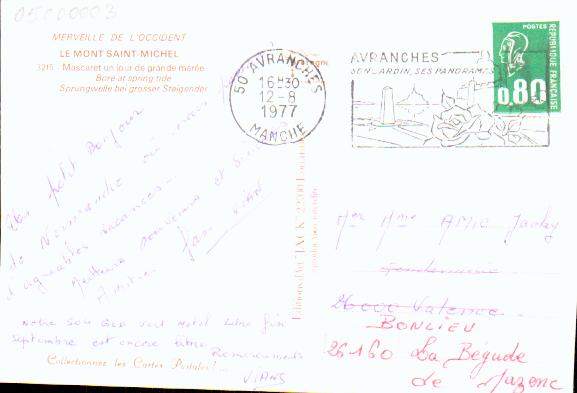 05C00003
MERVEILLE DE L'OCCIDENT
LE MONT SAINT-MICHEL
3215 - Mascaret un jour de grande marée
Bore at spring tide
Sprungwelle bei grosser Steigender
50 AVRANCHES
16H30
12-8
1977
MANCHE
AVRANCHES
SON JARDIN, SES PANORAMAS
POSTES
0.80
REPUBLIQUE FRANÇAISE
Un petit Bonjour
de Normandie ou nous
d'agréables vacances
Meilleurs souvenirs et
Amitiés
VIAN
septembre est encore libre
Remerciements
VIANS
Collectionnez les Cartes Postales!
Editions d'Art "JACK"
Mer Mme
Gendarmerie
26000 Valence
BONLIEU
26160 La Bégude
de Mazenc